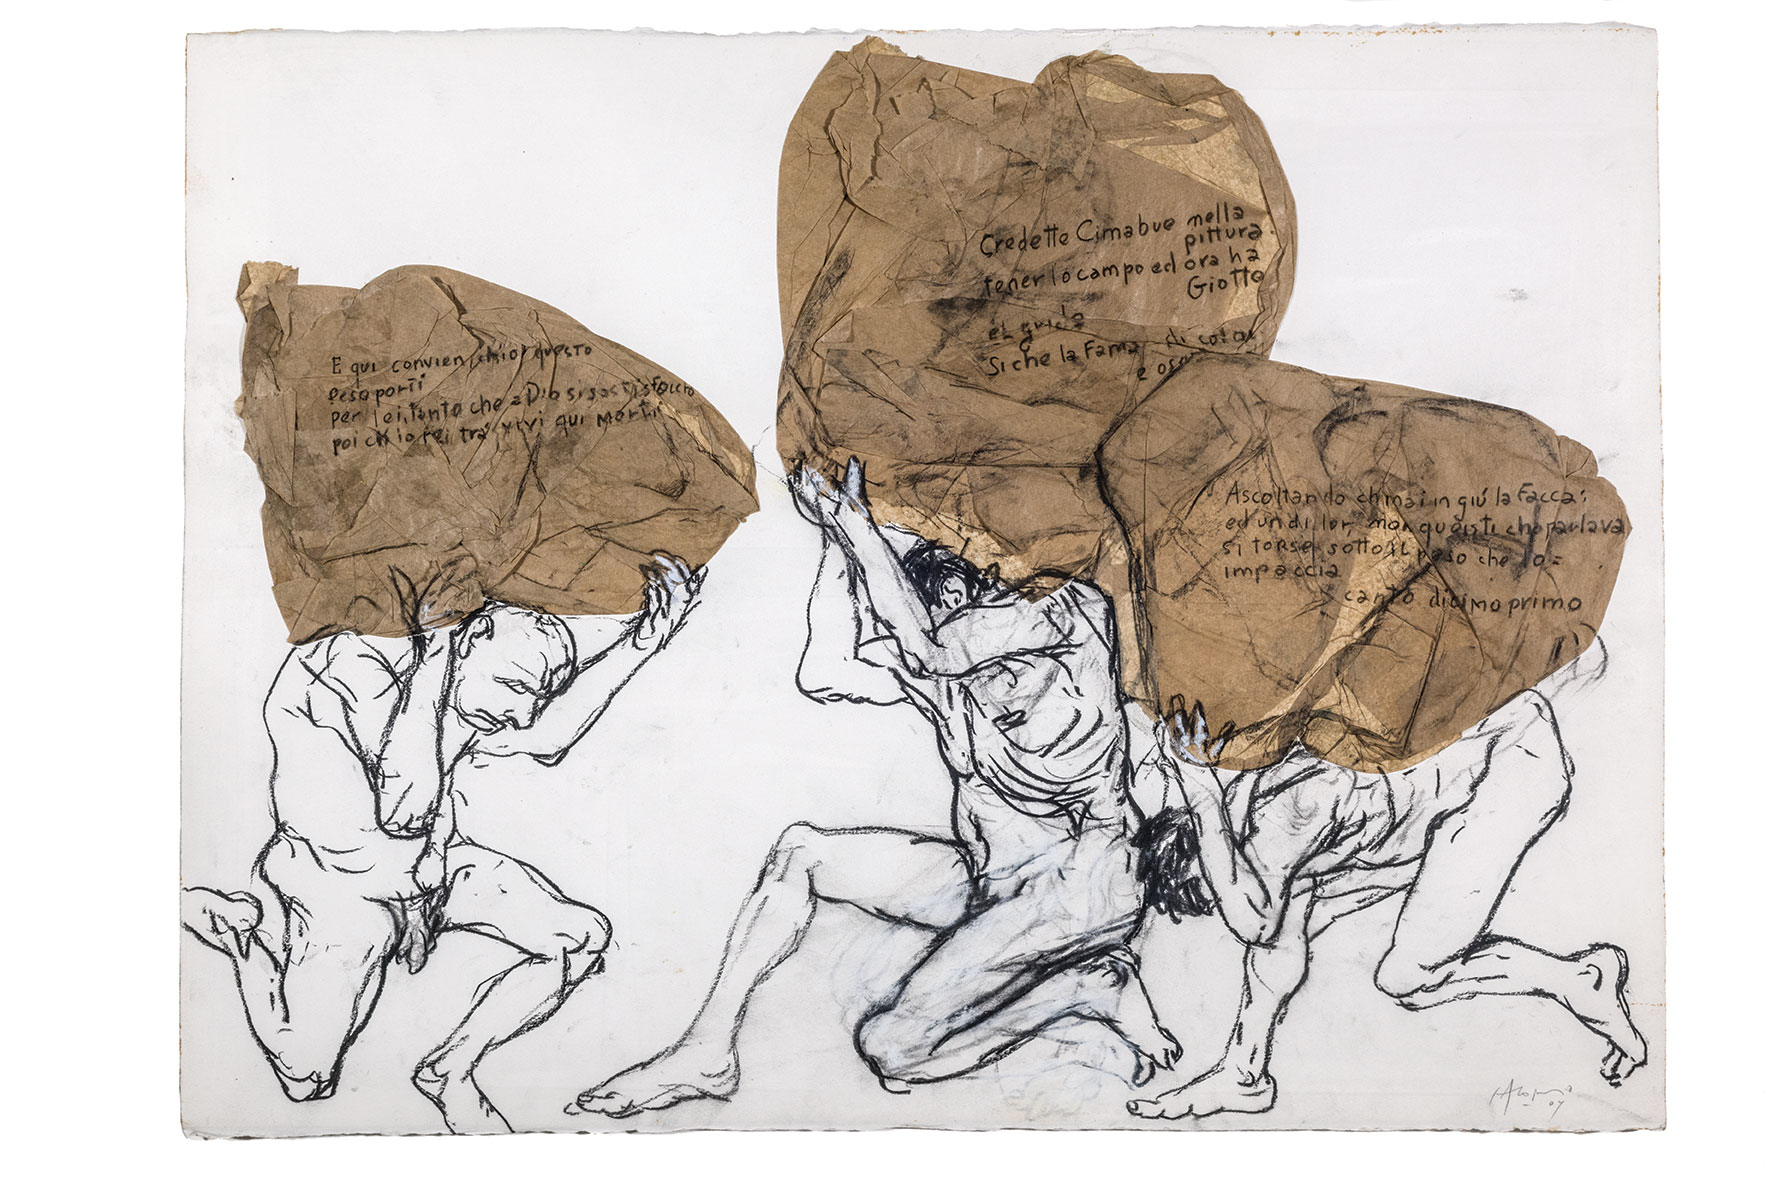 E qui convien ch'io questo
peso porti
per lei, tanto che a Dio si sa tisfaccia
poi ch'io fei tra' vivi qui morti
Credette Cimabue nella
pittura
tener lo campo ed ora ha
Giotto
el grido
Si che la Fama di colui
e oscura
Ascoltando chinai in giú la Facca;
ed un di lor, non questi che parlava
si torse sotto il peso che lo =
impaccia
canto dicimo primo
07